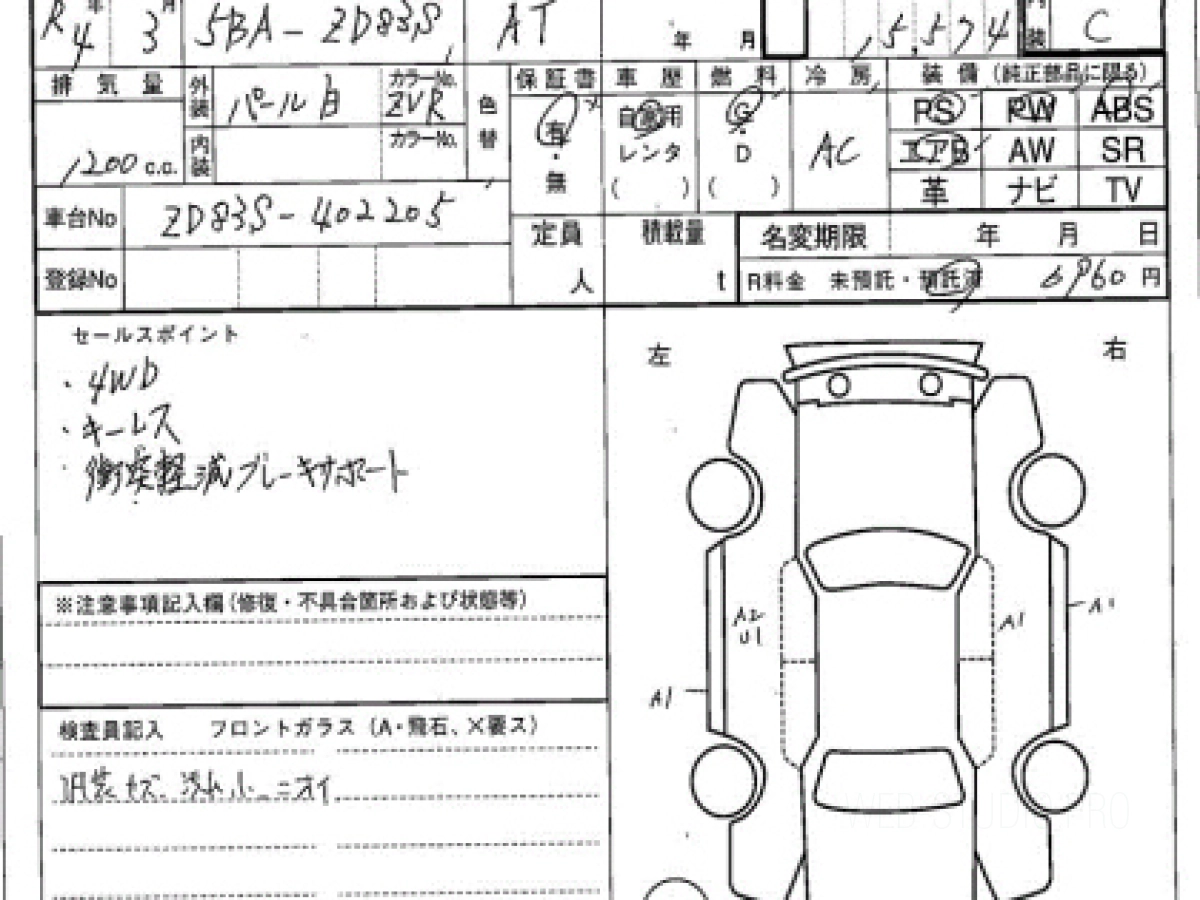 R4年 3月 5BA-ZD83S AT 年 月 15,574 内装 C
排気量 外装 パール白 カラーNo. ZVR 色替 保証書 車歴 燃料 冷房 装備 (純正部品に限る)
有・無 自家用 レンタ ( ) G D ( ) AC PS RW ABS
1200 c.c. 内装 カラーNo. エアB AW SR
革 ナビ TV
車台No ZD83S-402205 定員 人 積載量 t 名変期限 年 月 日
登録No R料金 未預託・預託済 6960円
セールスポイント
・4WD
・キーレス
・衝突軽減ブレーキサポート
左 右
A2
U1
A1
A1
A1
※注意事項記入欄(修復・不具合箇所および状態等)
検査員記入 フロントガラス (A・飛石、X要ス)
内装キズ、汚れ小 ニオイ
WEB STUDIO PRO